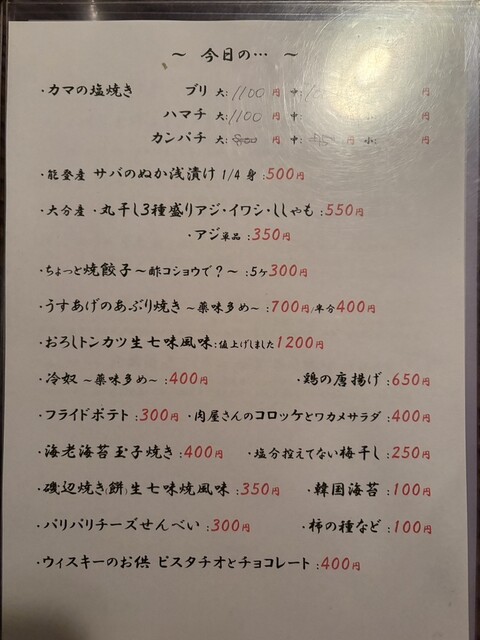 ～ 今日の… ～
・カマの塩焼き ブリ 大:1100円 中: 円
ハマチ 大:1100円 中: 円 円
カンパチ 大: 円 中: 円 小: 円
・能登産 サバのぬか浅漬け 1/4 身 :500円
・大分産 ・丸干し3種盛りアジ・イワシ・ししゃも :550円
・アジ単品 :350円
・ちょっと焼餃子 ～酢コショウで？～ :5ケ300円
・うすあげのあぶり焼き ～薬味多め～ :700円/半分400円
・おろしトンカツ生七味風味:値上げしました1200円
・冷奴 ～薬味多め～ :400円 ・鶏の唐揚げ :650円
・フライドポテト :300円 ・肉屋さんのコロッケとワカメサラダ :400円
・海老海苔玉子焼き :400円 ・塩分控えてない梅干し :250円
・磯辺焼き(餅)生七味焼風味 :350円 ・韓国海苔 :100円
・パリパリチーズせんべい :300円 ・柿の種など :100円
・ウィスキーのお供 ピスタチオとチョコレート :400円